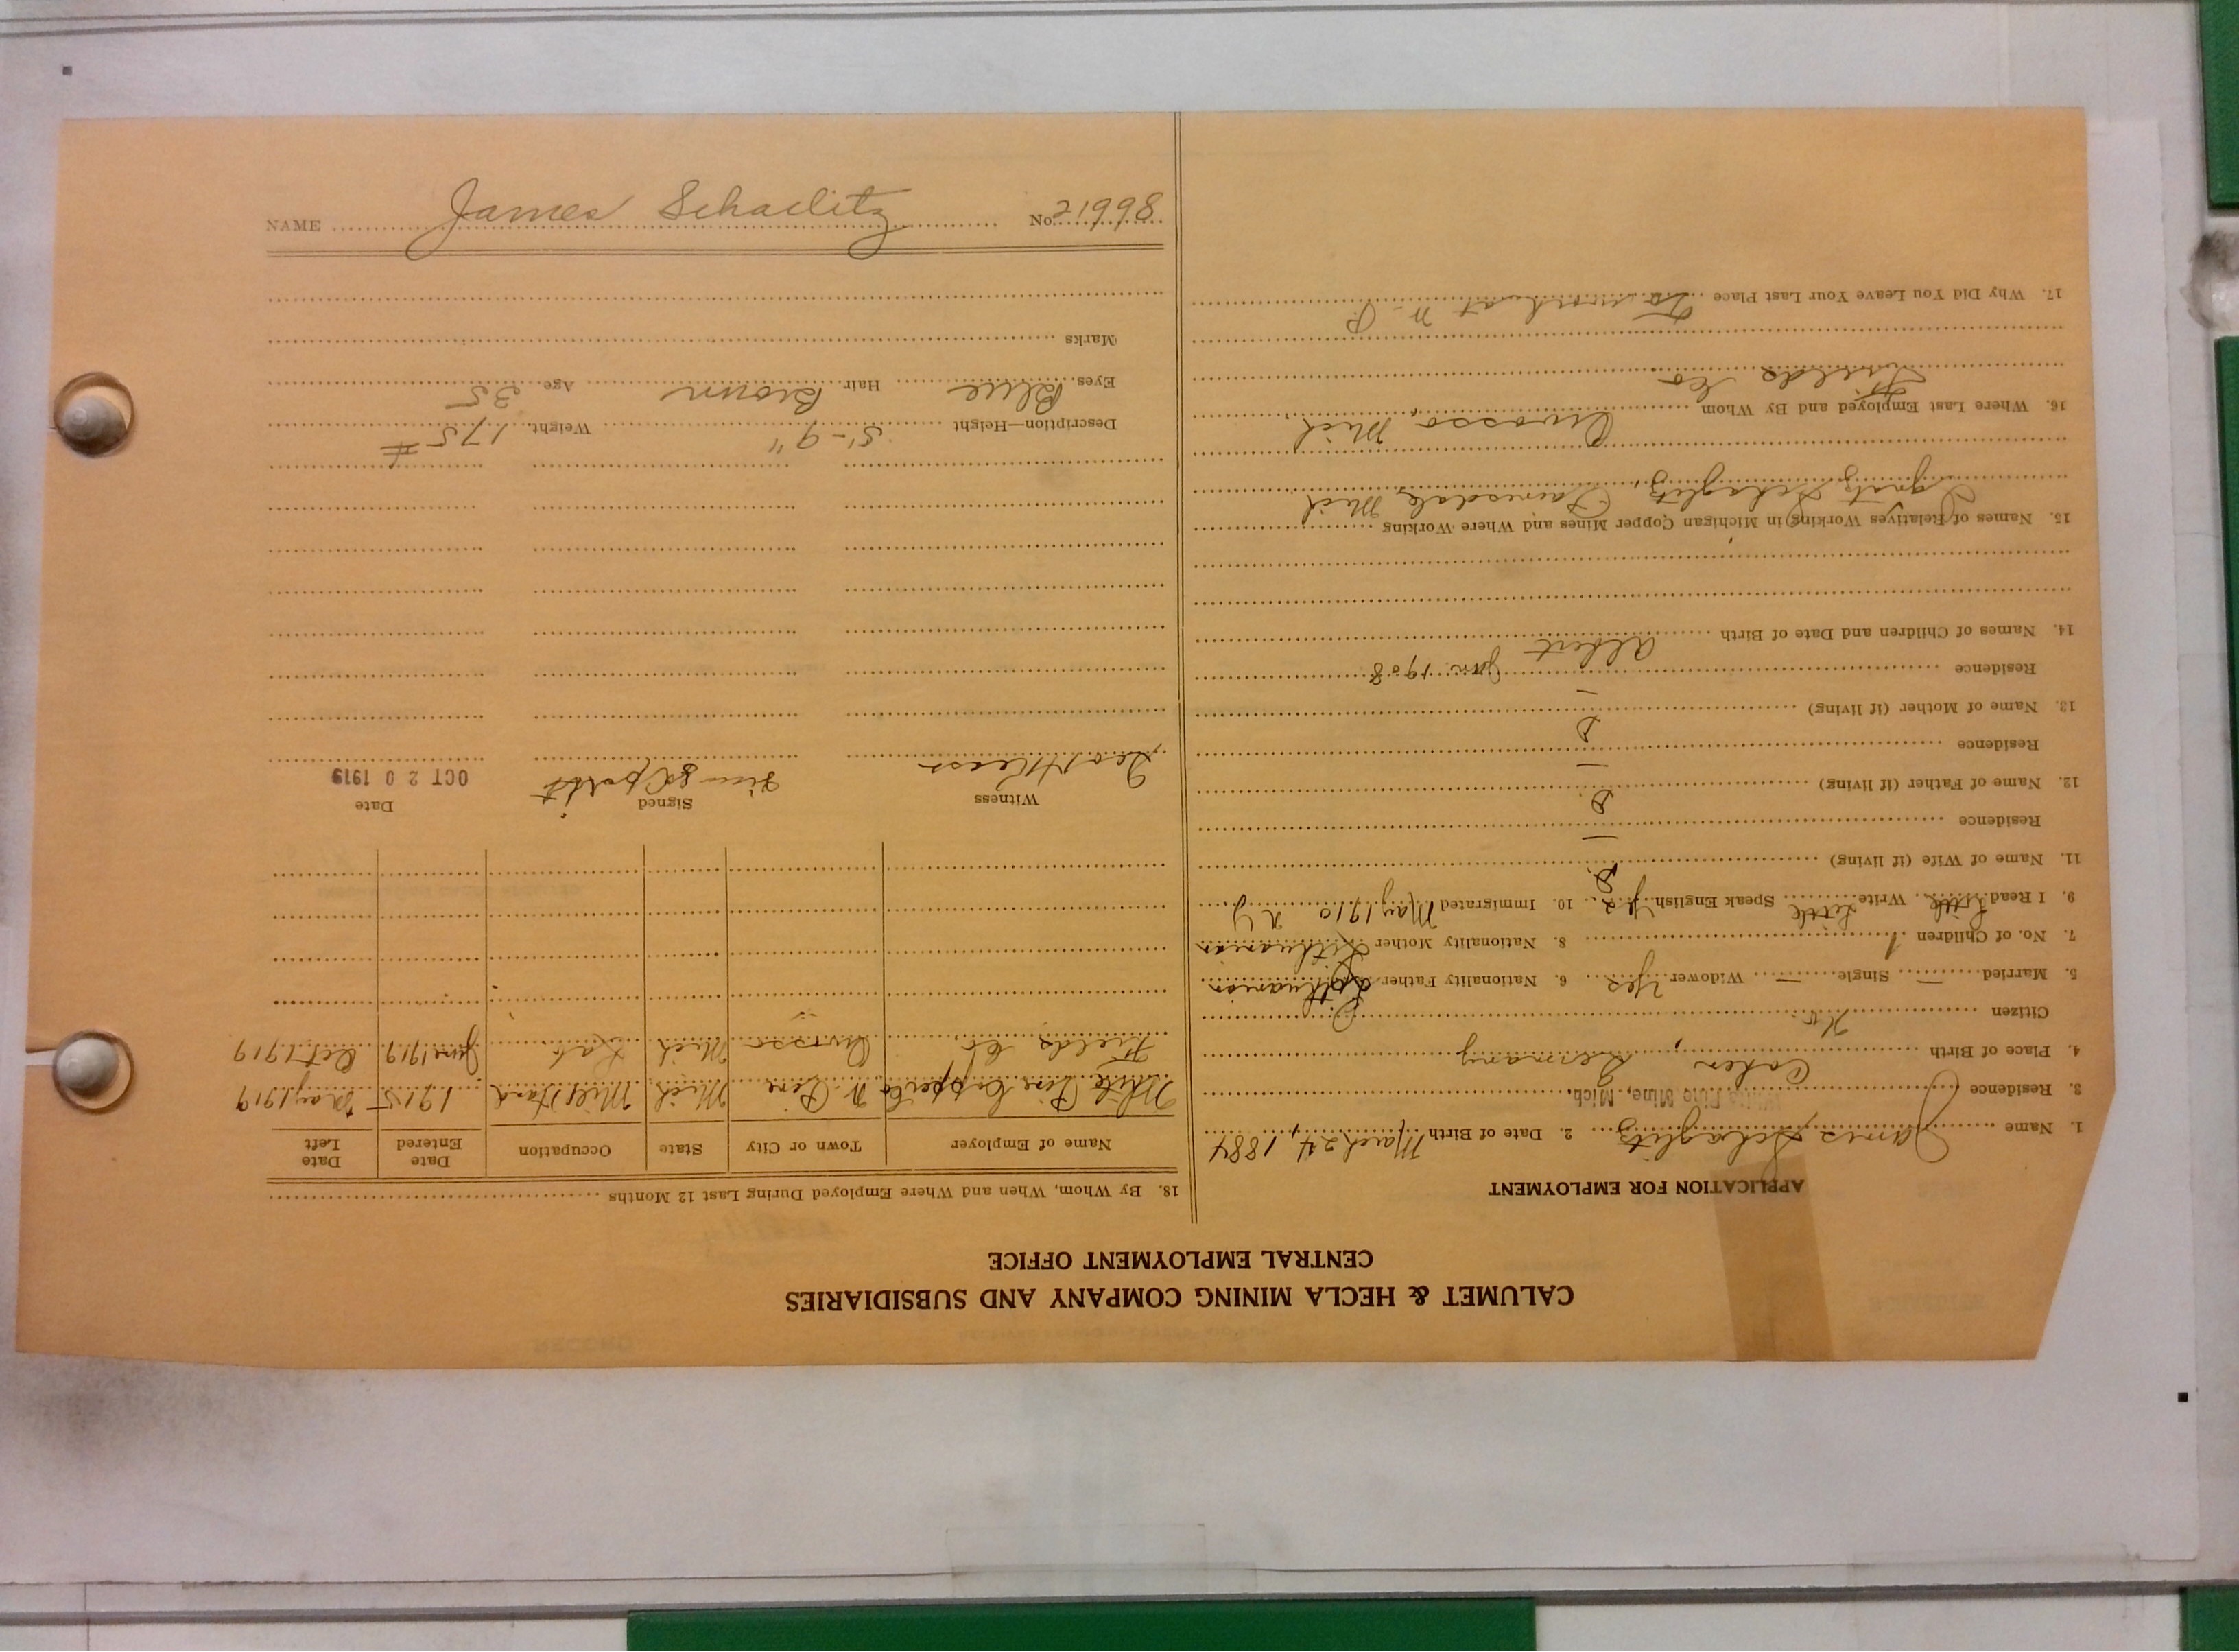 CALUMET & HECLA MINING COMPANY AND SUBSIDIARIES
CENTRAL EMPLOYMENT OFFICE
APPLICATION FOR EMPLOYMENT
1. Name James Schaglitz 2. Date of Birth March 24, 1884
3. Residence White Pine Mine, Mich.
4. Place of Birth Germany
Citizen No
5. Married – Single – Widower Yes 6. Nationality Father Lithuanian
7. No. of Children 1 8. Nationality Mother Lithuanian
9. I Read Little Write Little Speak English Yes 10. Immigrated May 1910 N Y
11. Name of Wife (if living) D.
Residence –
12. Name of Father (if living) D.
Residence –
13. Name of Mother (if living) D
Residence –
14. Names of Children and Date of Birth Albert
Jun 1908
15. Names of Relatives Working in Michigan Copper Mines and Where Working
Ignatz Schaglitz, Painesdale, Mich
16. Where Last Employed and By Whom Owosso, Mich
Fields Co
17. Why Did You Leave Your Last Place To work at W. P.
18. By Whom, When and Where Employed During Last 12 Months
Name of Employer Town or City State Occupation Date Entered Date Left
White Pine Copper Co W. Pine Mich Mill Hand 1915 May 1919
Fields Co. Owosso Mich Lab. June 1919 Oct 1919
Witness Signed Date
OCT 20 1919
Description—Height 5'-9" Weight 175 #
Eyes Blue Hair Brown Age 35
Marks
NAME James Schaelitz No. 21998